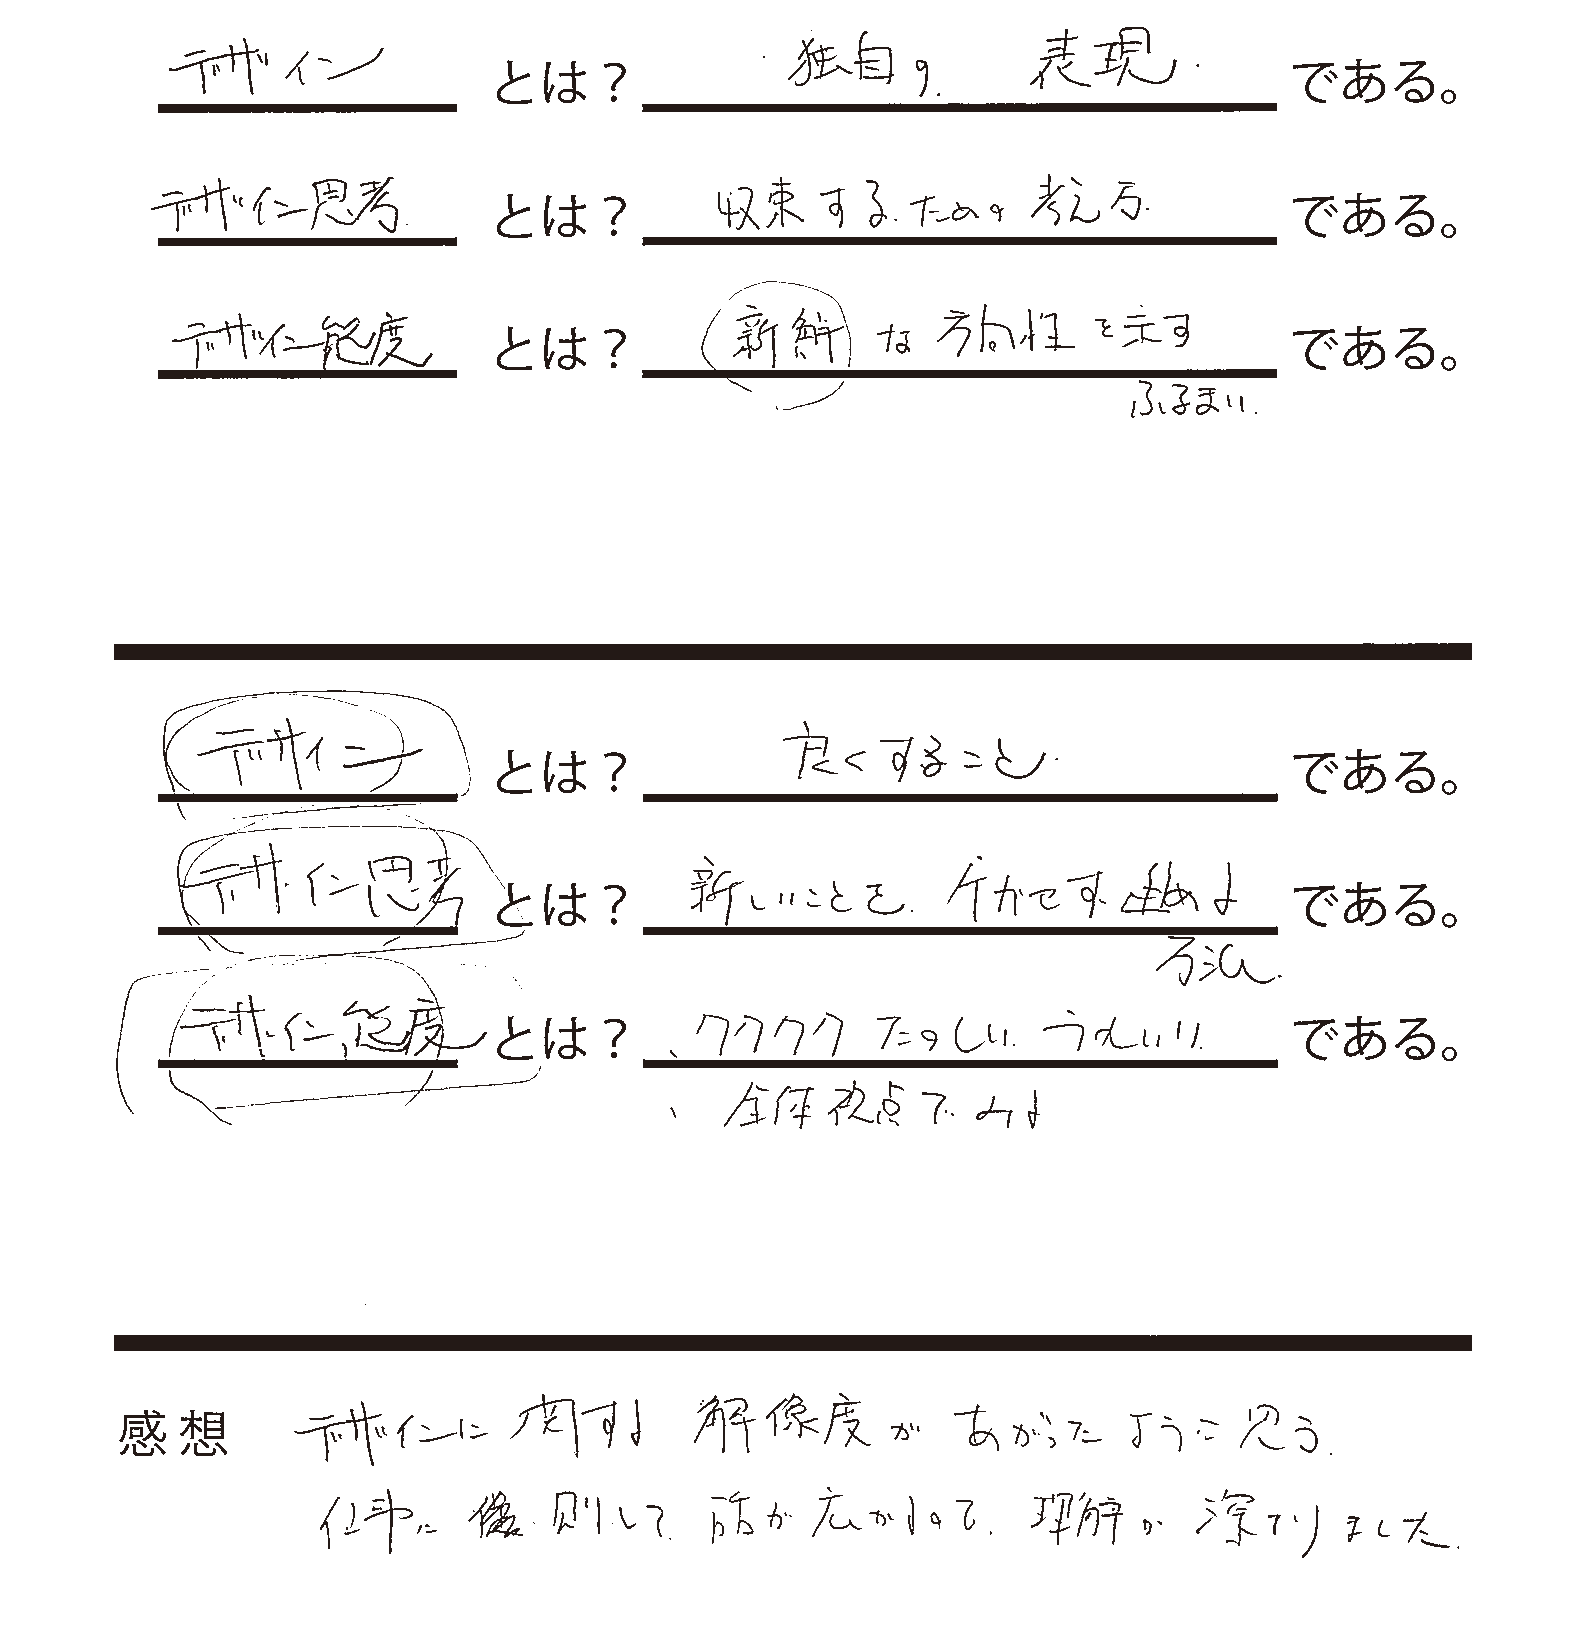 デザイン とは？ 独自の 表現 である。
デザイン思考 とは？ 収束するための考え方 である。
デザイン態度 とは？ 新鮮な方向性を示す である。
ふるまい
デザイン とは？ 良くすること である。
デザイン思考 とは？ 新しいことを、 である。
方法
デザイン態度 とは？ 、ワクワク たのしい うれしい である。
、全体視点でみる
感想 デザインに関する 解像度が あがったように思う。
仕事に して 話が広がるので、理解が 深まりました。